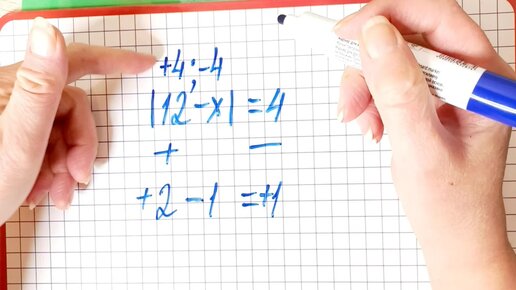 +4; -4
|12-x| = 4
+ −
+2 - 1 = +1